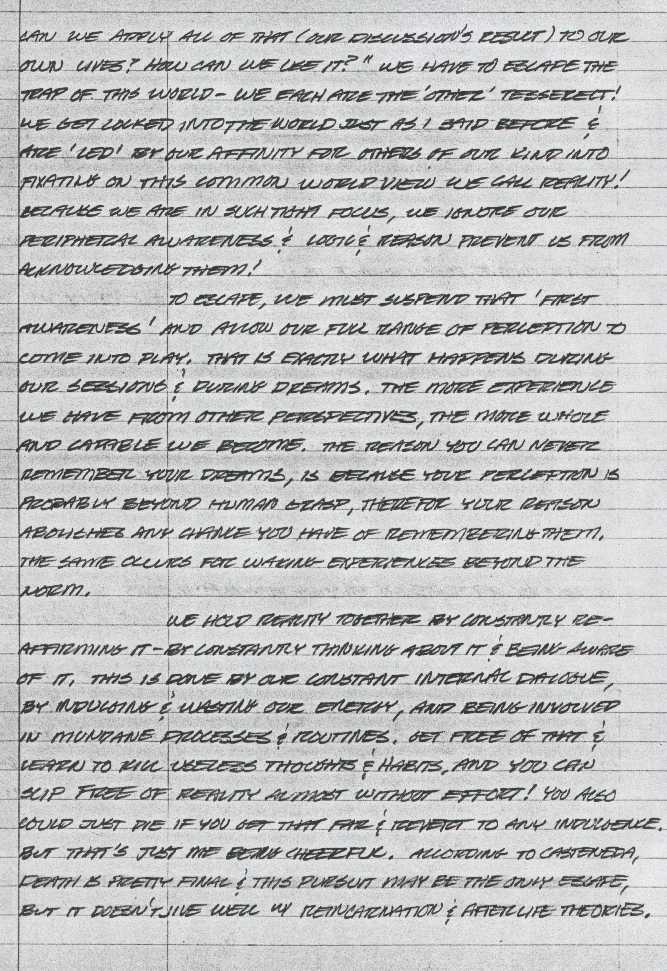 CAN WE APPLY ALL OF THAT (OUR DISCUSSION'S RESULT) TO OUR
OWN LIVES? HOW CAN WE USE IT?" WE HAVE TO ESCAPE THE
TRAP OF THIS WORLD - WE EACH ARE THE 'OTHER' TESSERECT!
WE GET LOCKED INTO THE WORLD JUST AS I SAID BEFORE &
ARE 'LED' BY OUR AFFINITY FOR OTHERS OF OUR KIND INTO
FIXATING ON THIS COMMON WORLD VIEW WE CALL REALITY!
BECAUSE WE ARE IN SUCH TIGHT FOCUS, WE IGNORE OUR
PERIPHERAL AWARENESS & LOGIC & REASON PREVENT US FROM
ACKNOWLEDGING THEM!
TO ESCAPE, WE MUST SUSPEND THAT 'FIRST
AWARENESS' AND ALLOW OUR FULL RANGE OF PERCEPTION TO
COME INTO PLAY. THAT IS EXACTLY WHAT HAPPENS DURING
OUR SESSIONS & DURING DREAMS. THE MORE EXPERIENCE
WE HAVE FROM OTHER PERSPECTIVES, THE MORE WHOLE
AND CAPABLE WE BECOME. THE REASON YOU CAN NEVER
REMEMBER YOUR DREAMS, IS BECAUSE YOUR PERCEPTION IS
PROBABLY BEYOND HUMAN GRASP, THEREFOR YOUR REASON
ABOLISHES ANY CHANCE YOU HAVE OF REMEMBERING THEM.
THE SAME OCCURS FOR WAKING EXPERIENCES BEYOND THE
NORM.
WE HOLD REALITY TOGETHER BY CONSTANTLY RE-
AFFIRMING IT - BY CONSTANTLY THINKING ABOUT IT & BEING AWARE
OF IT. THIS IS DONE BY OUR CONSTANT INTERNAL DIALOGUE,
BY INDULGING & WASTING OUR ENERGY, AND BEING INVOLVED
IN MUNDANE PROCESSES & ROUTINES. GET FREE OF THAT &
LEARN TO KILL USELESS THOUGHTS & HABITS, AND YOU CAN
SLIP FREE OF REALITY ALMOST WITHOUT EFFORT! YOU ALSO
COULD JUST DIE IF YOU GET THAT FAR & REVERT TO ANY INDULGENCE.
BUT THAT'S JUST ME BEING CHEERFUL. ACCORDING TO CASTENEDA,
DEATH IS PRETTY FINAL & THIS PURSUIT MAY BE THE ONLY ESCAPE,
BUT IT DOESN'T JIVE WELL W/ REINCARNATION & AFTERLIFE THEORIES.